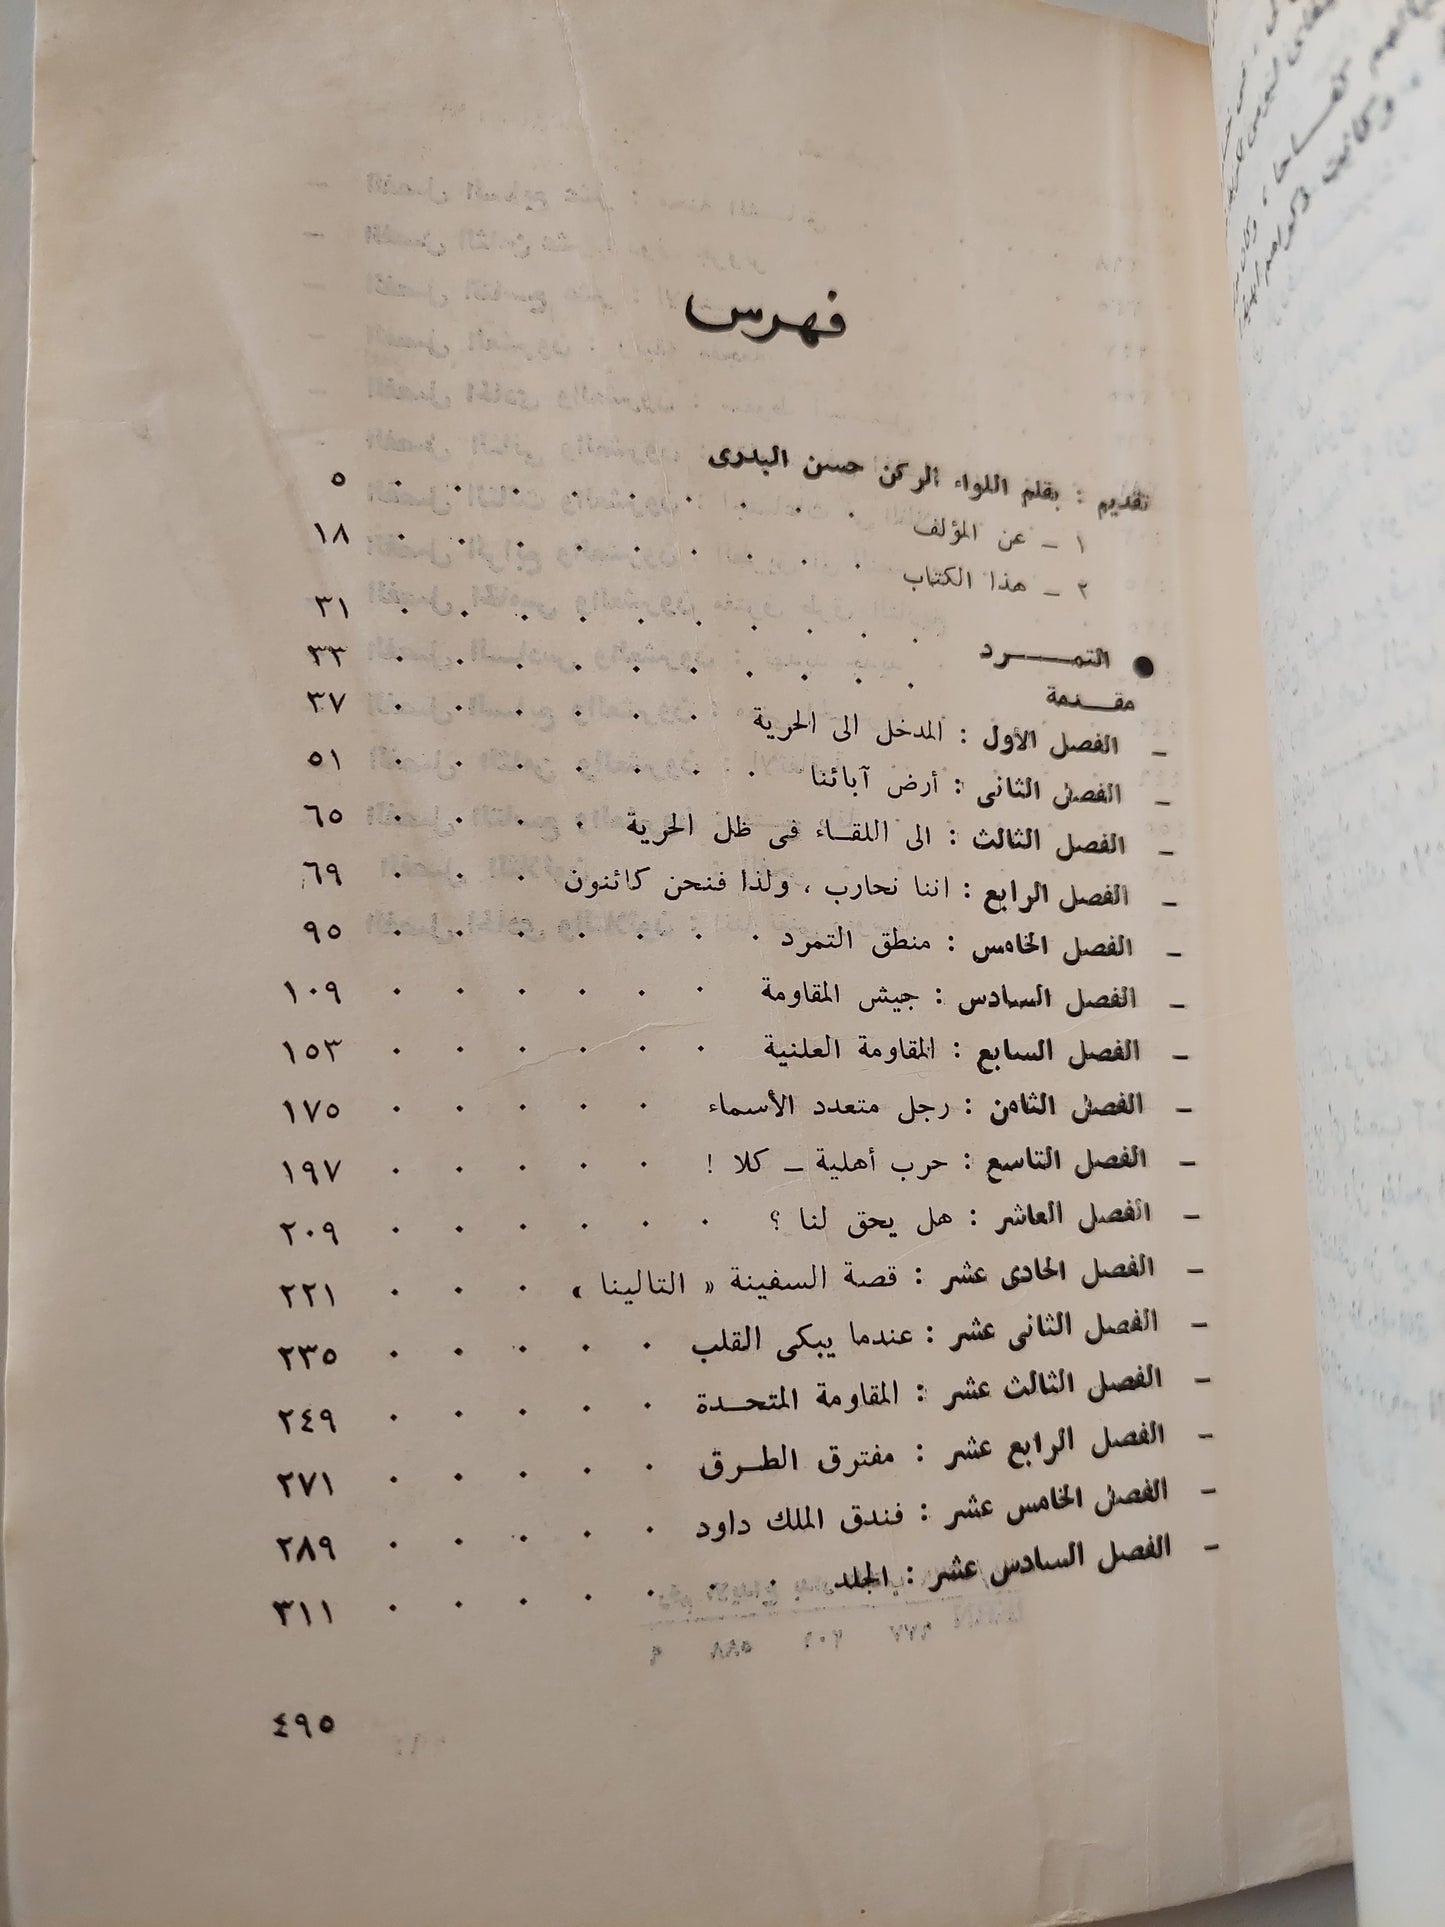 فهرس
تقديم : بقلم اللواء الركن حسن البدرى
١ ـ عن المؤلف . . . . . . . . . ٥
٢ ـ هذا الكتاب . . . . . . . . . ١٨
● التمـــــرد . . . . . . . . . ٣١
مقـــدمة . . . . . . . . . . ٣٣
ـ الفصل الأول : المدخل الى الحرية . . . . . . ٣٧
ـ الفصل الثانى : أرض آبائنا . . . . . . . ٥١
ـ الفصل الثالث : الى اللقـــاء فى ظل الحرية . . . . ٦٥
ـ الفصل الرابع : اننا نحارب ، ولذا فنحن كائنون . . . ٦٩
ـ الفصل الخامس : منطق التمرد . . . . . . . ٩٥
ـ الفصل السادس : جيش المقاومة . . . . . . ١٠٩
ـ الفصل السابع : المقاومة العلنية . . . . . . ١٥٣
ـ الفصل الثامن : رجل متعدد الأسماء . . . . . ١٧٥
ـ الفصل التاسع : حرب أهلية ـ كلا ! . . . . . ١٩٧
ـ الفصل العاشر : هل يحق لنا ؟ . . . . . . ٢٠٩
ـ الفصل الحادى عشر : قصة السفينة « التالينا » . . . ٢٢١
ـ الفصل الثانى عشر : عندما يبكى القلب . . . . . ٢٣٥
ـ الفصل الثالث عشر : المقاومة المتحـــدة . . . . . ٢٤٩
ـ الفصل الرابع عشر : مفترق الطـــرق . . . . . ٢٧١
ـ الفصل الخامس عشر : فندق الملك داود . . . . . ٢٨٩
ـ الفصل السادس عشر : الجلد . . . . . . . ٣١١
٤٩٥